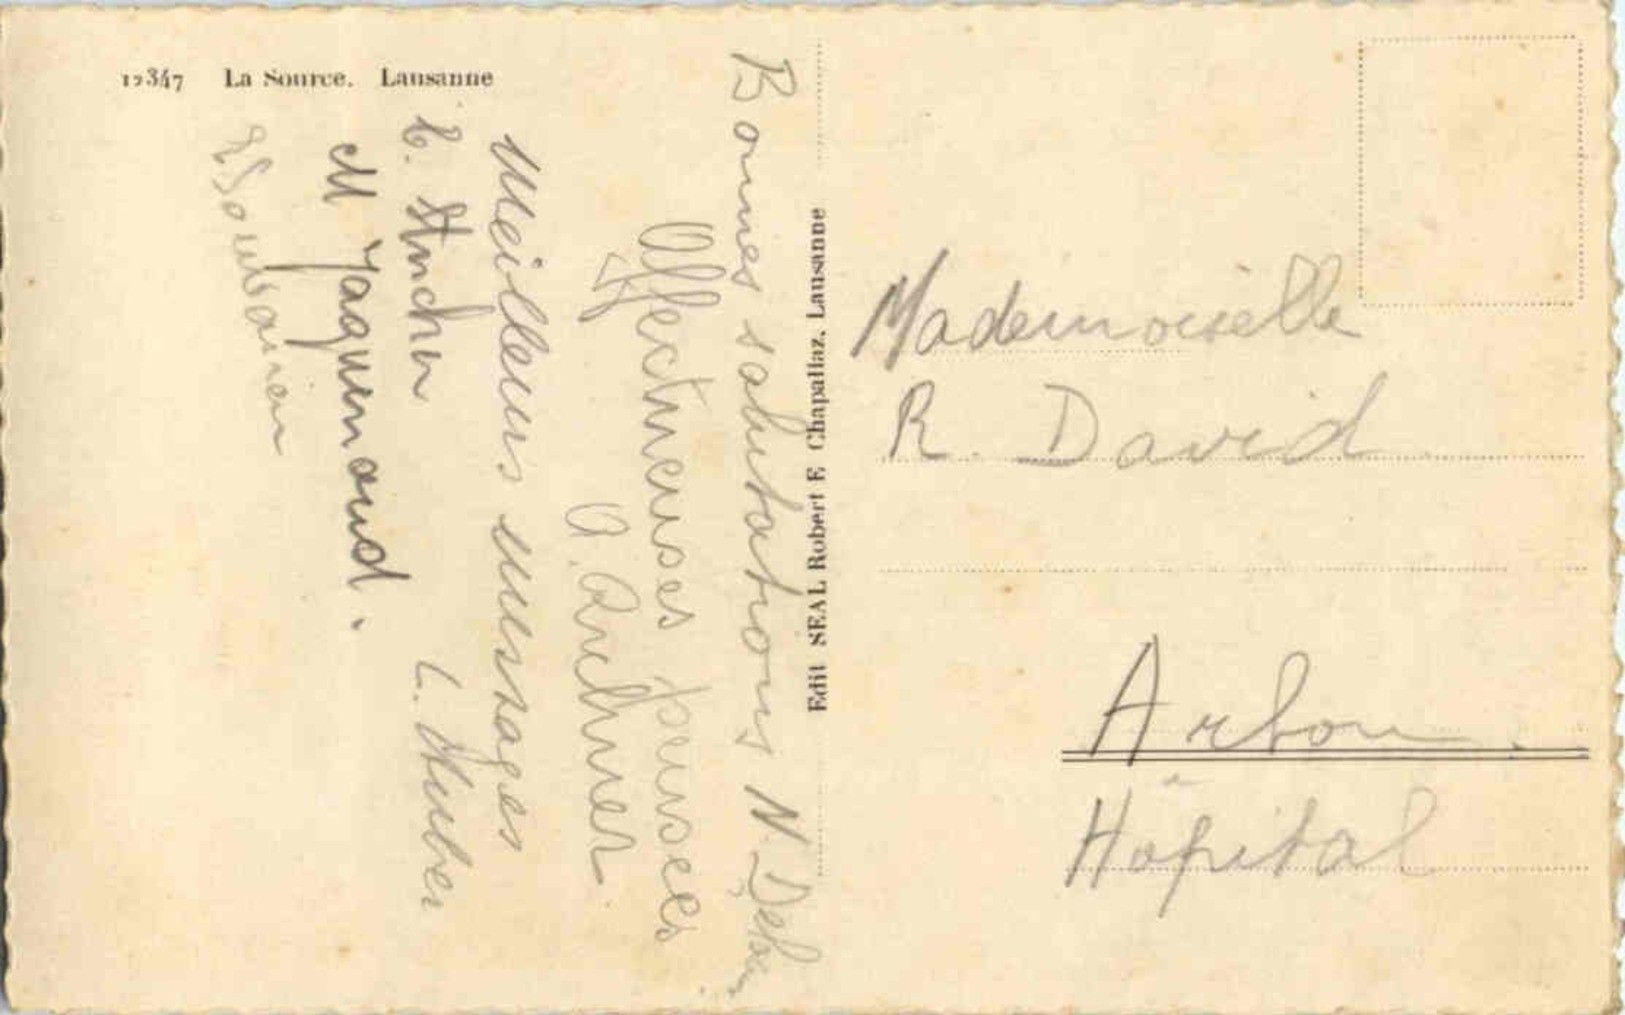 12347 La Source. Lausanne
Bonnes salutations N.
Affectueuses pensées
A.
Meilleurs messages
E.
L. Huber
M Jaquenoud.
Edit SEAL Robert E. Chapallaz, Lausanne
Mademoiselle
R. David
Arbon.
Hôpital